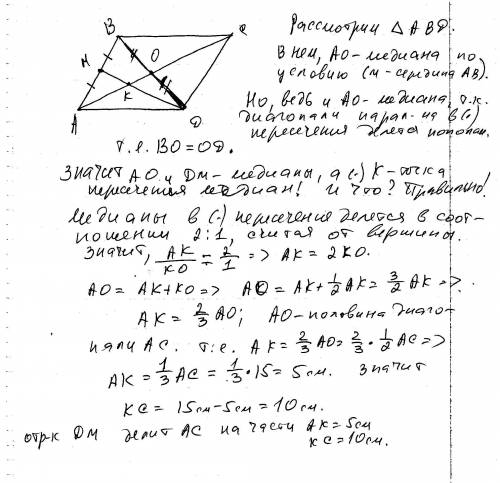 B
C
M
O
K
A
D
Рассмотрим △ ABD.
В нем, AO - медиана по
условию (M - середина AB).
Но, ведь и AO - медиана, т.к.
диагонали парал-ма в (·)
пересечения делятся пополам.
т.е. BO = OD.
Значит AO и DM - медианы, а (·) K - точка
пересечения медиан! И что? Правильно!
Медианы в (·) пересечения делятся в соот-
ношении 2:1, считая от вершины.
Значит, AK/KO = 2/1 => AK = 2KO.
AO = AK + KO => AO = AK + 1/2 AK = 3/2 AK =>
AK = 2/3 AO; AO - половина диаго-
нали AC. т.е. AK = 2/3 AO = 2/3 · 1/2 AC =>
AK = 1/3 AC = 1/3 · 15 = 5 см. Значит
KC = 15см - 5см = 10 см.
отр-к DM делит AC на части AK = 5см
KC = 10см.